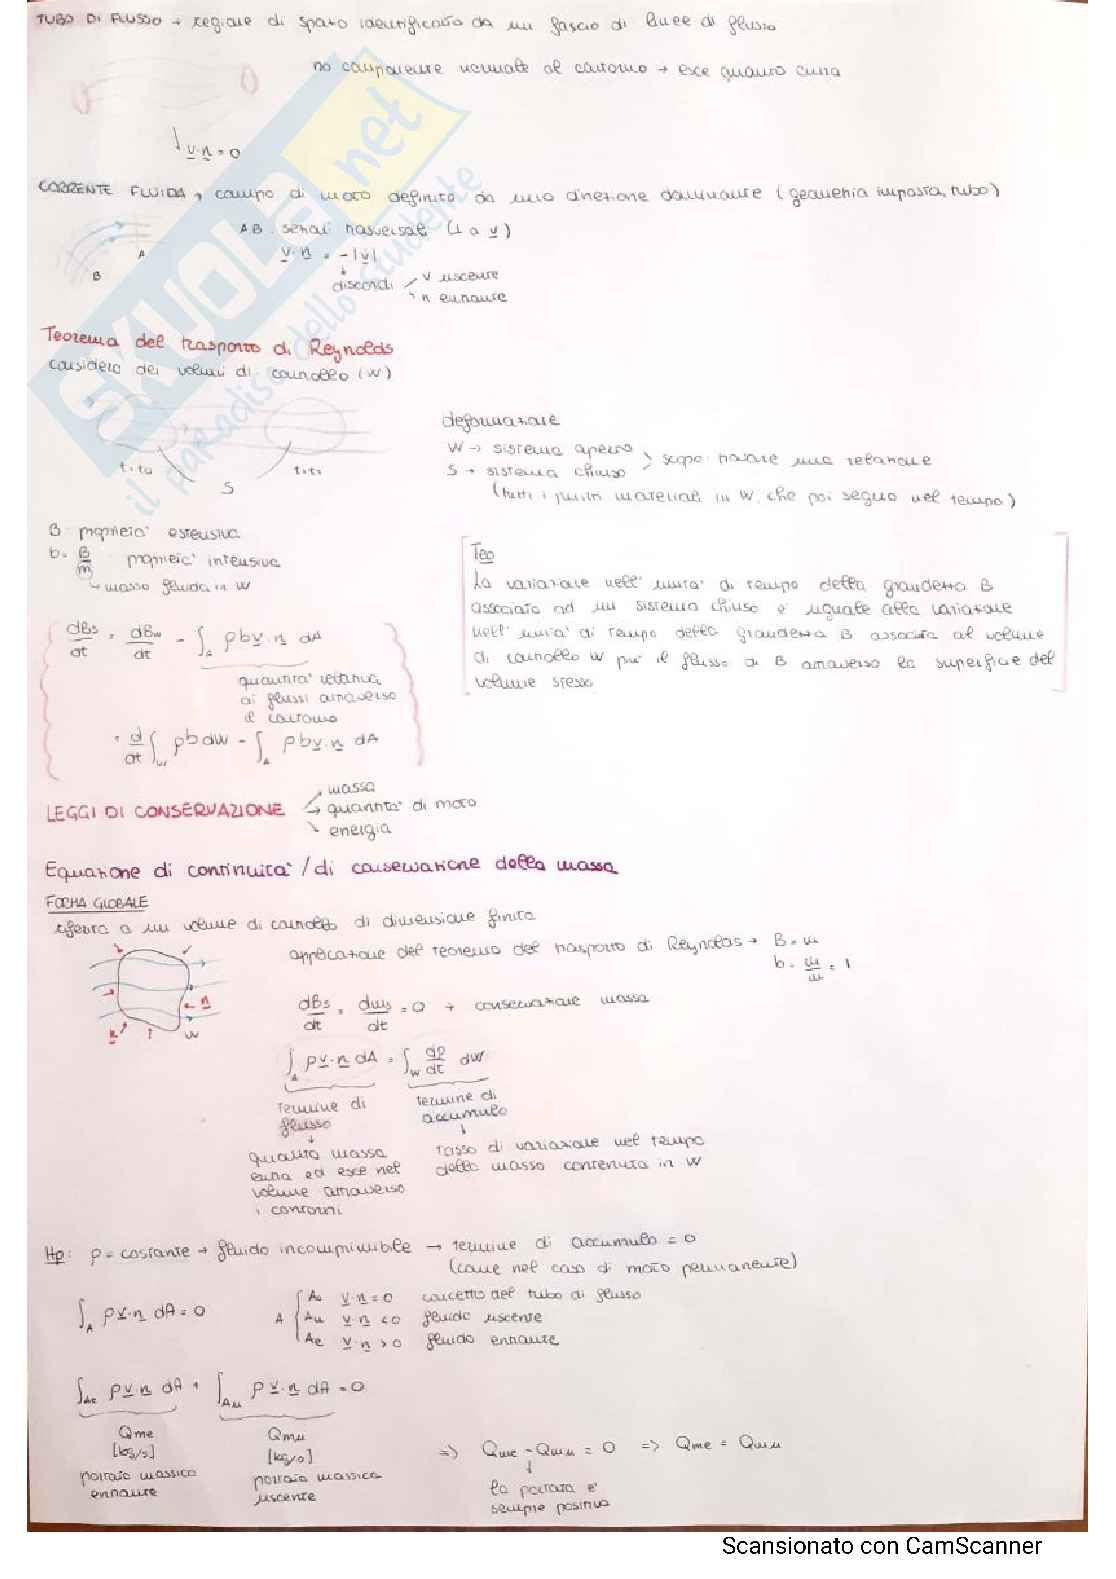 TUBO DI FLUSSO → regione di spazio identificata da un fascio di linee di flusso
no componente normale al contorno → esce quanto entra
v·n = 0
CORRENTE FLUIDA → campo di moto definito da una direzione dominante (geometria imposta, tubo)
AB: sezioni trasversali (⊥ a v)
v·n = -|v|
A
B
discordi
v uscente
n entrante
Teorema del trasporto di Reynolds
considero dei volumi di controllo (W)
deformazione
W → sistema aperto
S → sistema chiuso
scopo: trovare una relazione
(tutti i punti materiali in W, che poi seguo nel tempo)
t=t0
t=t1
S
B: proprietà estensiva
b = B/m proprietà intensiva
massa fluida in W
Teo
La variazione nell'unità di tempo della grandezza B
associata ad un sistema chiuso è uguale alla variazione
nell'unità di tempo della grandezza B associata al volume
di controllo W più il flusso di B attraverso la superficie del
volume stesso
dBs/dt = dBw/dt - ∫A ρb v·n dA
quantità relativa
ai flussi attraverso
il contorno
= d/dt ∫W ρb dW - ∫A ρb v·n dA
LEGGI DI CONSERVAZIONE
massa
quantità di moto
energia
Equazione di continuità / di conservazione della massa
FORMA GLOBALE
riferita a un volume di controllo di dimensione finita
applicazione del teorema del trasporto di Reynolds → B = m
b = m/m = 1
n
n
W
dBs/dt = dms/dt = 0 → conservazione massa
∫A ρ v·n dA = ∫W dρ/dt dW
termine di
flusso
termine di
accumulo
quanta massa
entra ed esce nel
volume attraverso
i contorni
tasso di variazione nel tempo
della massa contenuta in W
Hp: ρ = costante → fluido incomprimibile → termine di accumulo = 0
(come nel caso di moto permanente)
∫A ρ v·n dA = 0
A
v·n = 0 concetto del tubo di flusso
Au v·n < 0 fluido uscente
Ae v·n > 0 fluido entrante
∫Ae ρ v·n dA + ∫Au ρ v·n dA = 0
Qme
[kg/s]
portata massica
entrante
Qmu
[kg/s]
portata massica
uscente
=> Qme - Qmu = 0 => Qme = Qmu
la portata è
sempre positiva
SKUOLA.net
il paradiso dello studente
Scansionato con CamScanner